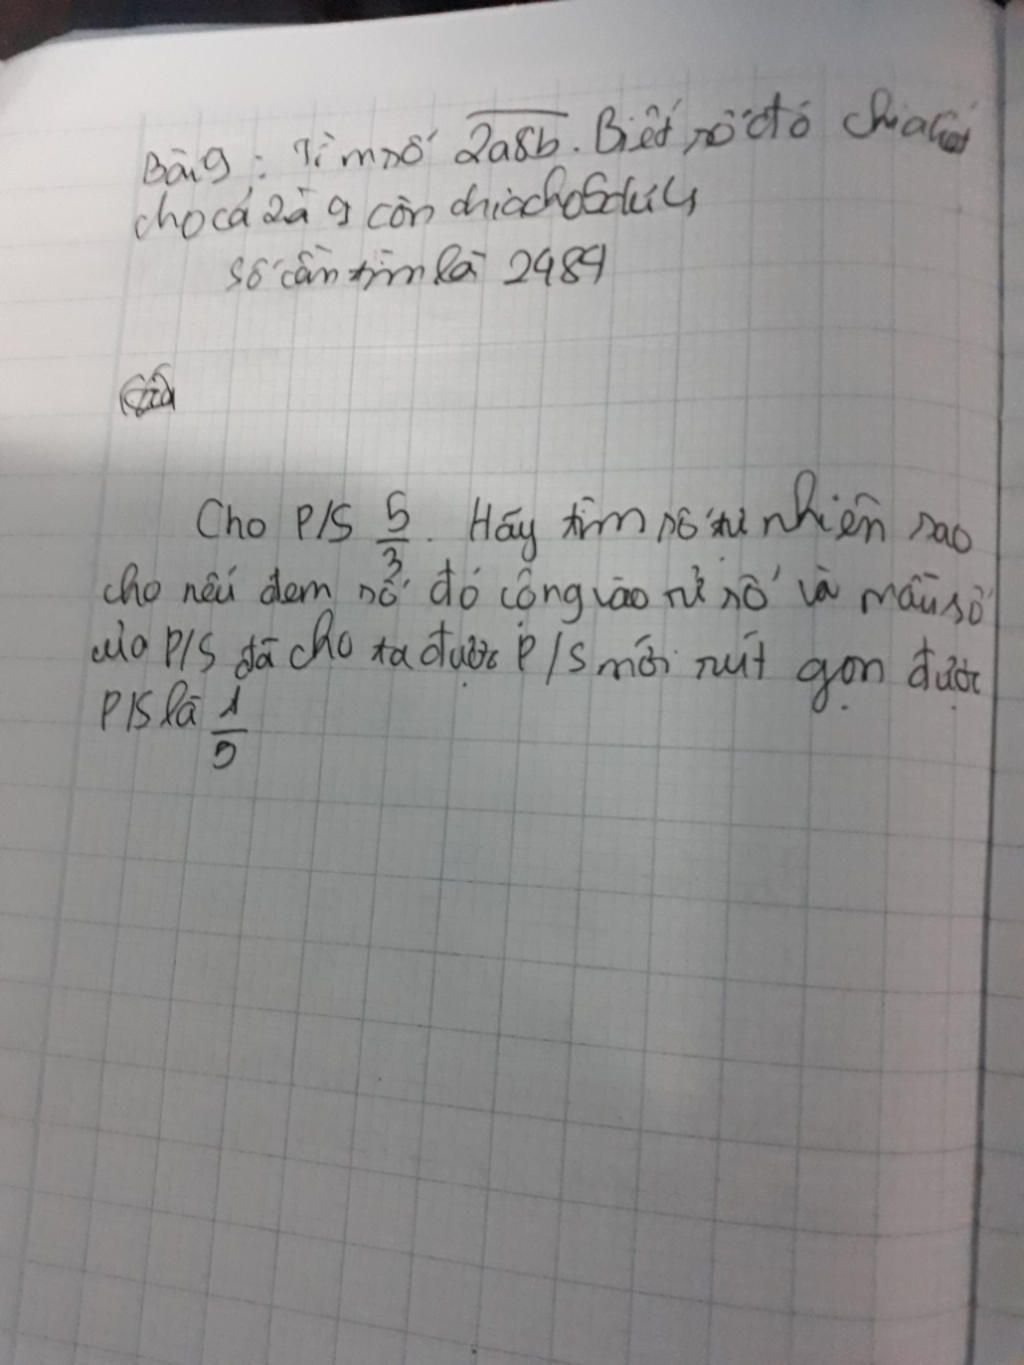 Bài 9: Tìm số 2a8b. Biết số đó chia hết
cho cả 2 và 9 còn chia cho 5 dư 4
Số cần tìm là 2484
Cho P/S 5/3. Hãy tìm số tự nhiên sao
cho nếu đem số đó cộng vào tử số và mẫu số
của P/S đã cho ta được P/S mới rút gọn được
P/S là 1/5